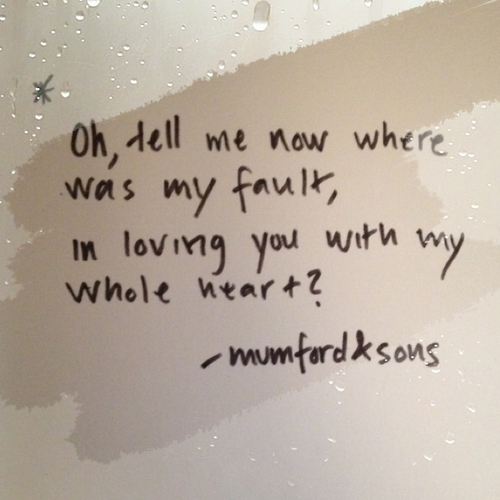 Oh, tell me now where
was my fault,
in loving you with my
whole heart?
- mumford & sons